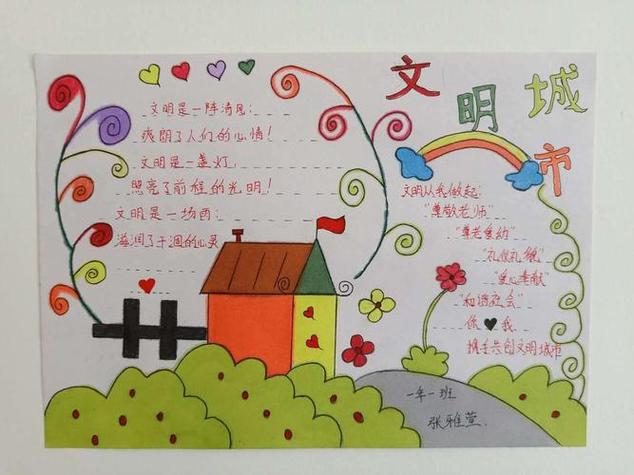 文明城市
文明是一阵清风：
爽朗了人们的心情！
文明是一盏灯，
照亮了前程的光明！
文明是一场雨：
滋润了干涸的心灵
文明从我做起：
"尊敬老师"
"尊老爱幼"
"礼仪礼貌"
"爱心奉献"
"和谐社会"
你♥我
携手共创文明城市
一年一班
张雅萱.